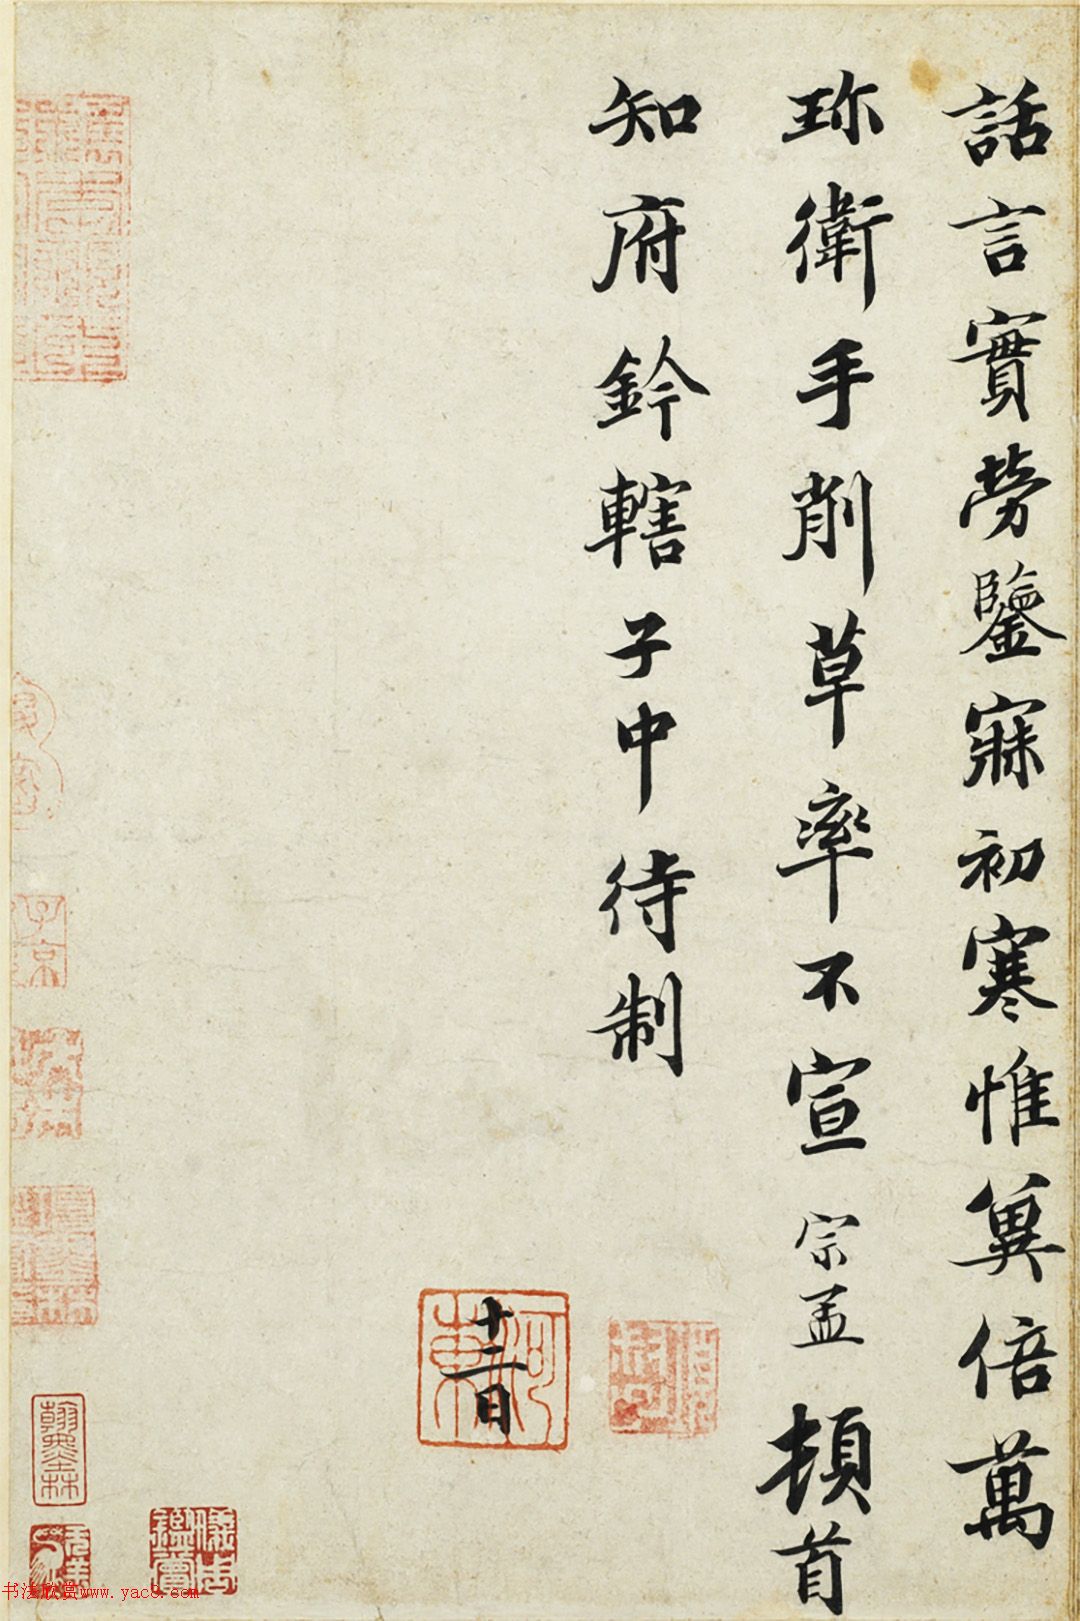 話言實勞鑒寐初寒惟冀倍萬
珎衛手削草率不宣 宗孟 頓首
知府鈐轄子中待制
十二日
河東
子京
翰墨林
书法欣赏www.yac8.com